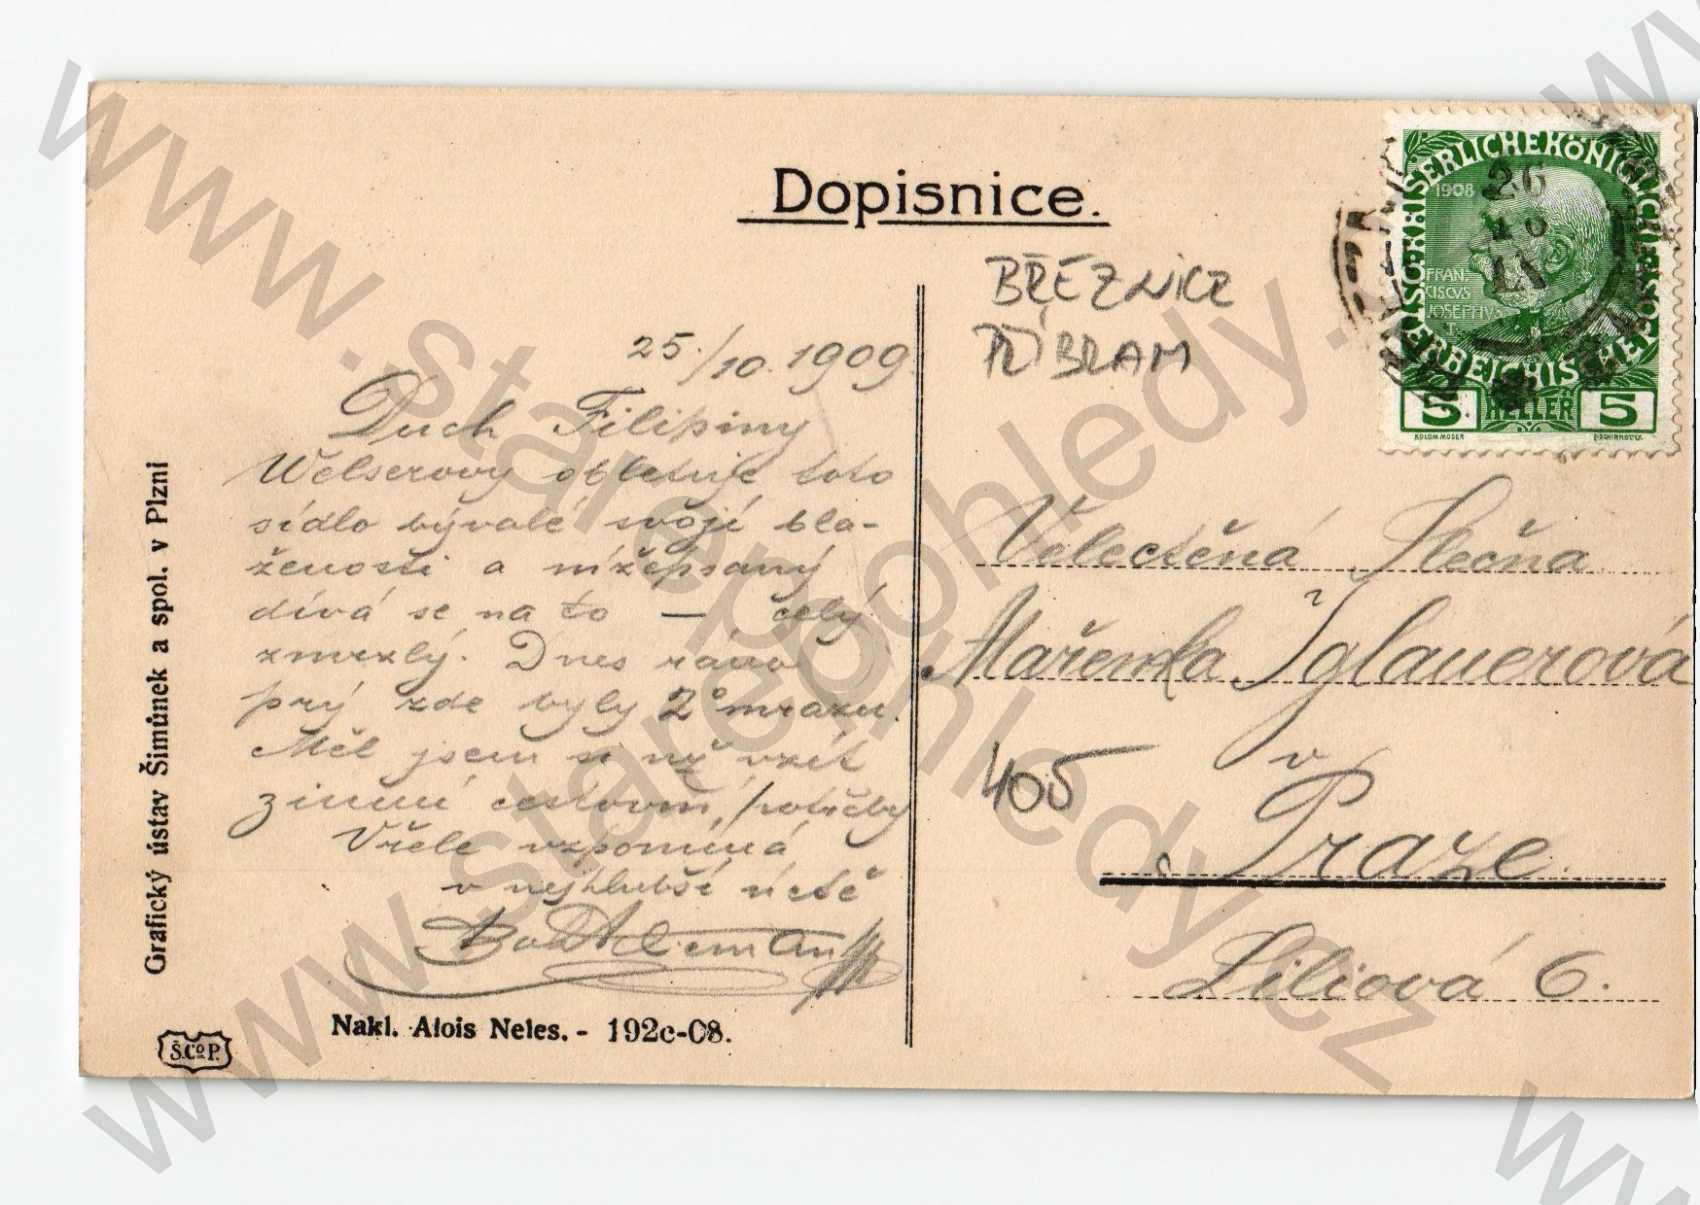 Dopisnice.
BŘEZNICE
PŘÍBRAM
25./10. 1909
Duch Filipiny
Welserovy obletuje toto
sídlo bývalé svojí bla-
ženosti a nížepsaný
dívá se na to — celý
zmrzlý. Dnes ráno
prý zde byly 2° mrazu.
Měl jsem si už vzít
zimní cestovní potřeby
Vřele vzpomíná
v nejhlubší úctě
Velectěná Slečna
Mařenka Iglauerová
v
Praze.
Liliová 6.
405
KAISERLICHE KÖNIGLICHE
ÖSTERREICHISCHE POST
1908
FRAN-
CISCVS
JOSEPHVS
I.
5 HELLER 5
KOLOM. MOSER
26
10
Grafický ústav Šimůnek a spol. v Plzni
Š.Co P.
Nakl. Alois Neles. - 192c-08.
www.starepohledy.cz
www.starepohledy.cz